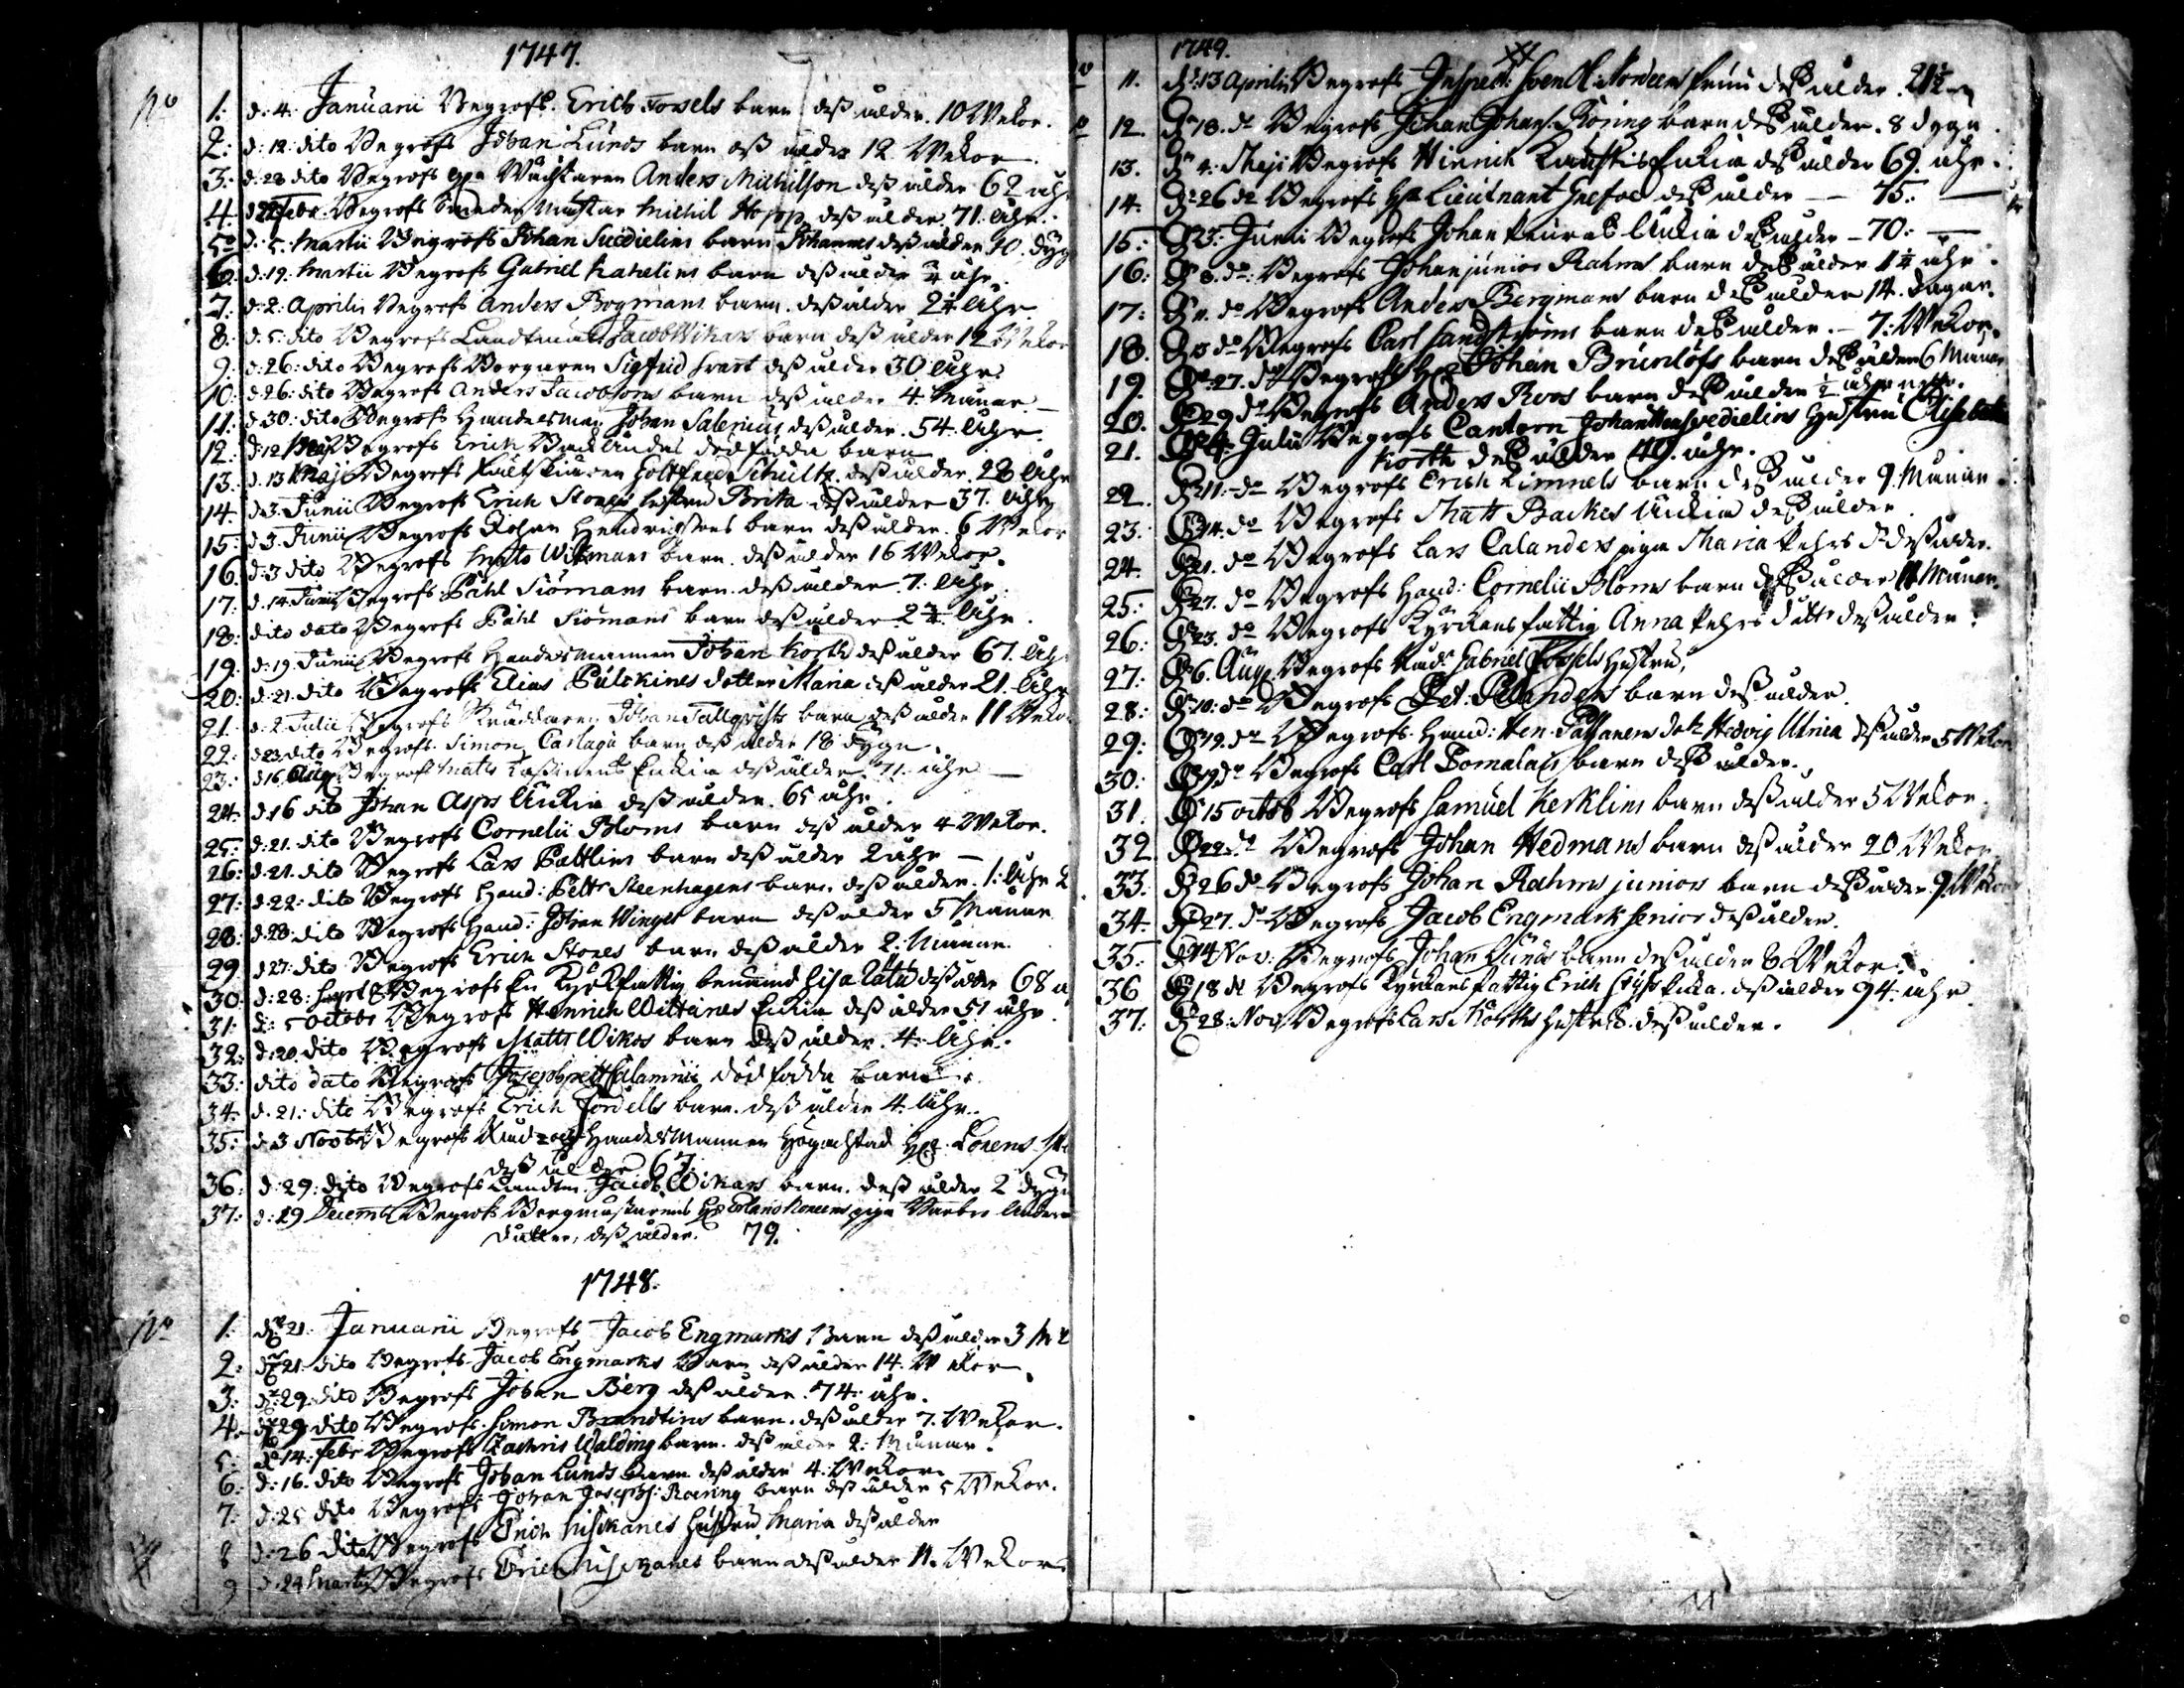 1747.
No 1: d: 4. Januarii Begrofs. Erich Forsels barn dess ålder. 10 Wekor.
2: d: 12: dito Begrofs Johan Lunds barn dess ålder 12 Wekor
3: d: 28 dito Begrofs Anders Michilson dess ålder 62 åhr
4. Febr: Begrofs Michil Hopp dess ålder 71. åhr.
5: d: 5: Martii Begrofs Johan Suedielius barn Johannes dess ålder 10. dygn
6: d: 19: Martii Begrofs Gabriel Kahelins barn dess ålder åhr.
7. d: 2: Aprilis Begrofs Anders Bogmans barn. dess ålder 2 1/4 åhr
8: d: 5: dito Begrofs Landtmät: Jacob Wikars barn dess ålder 12 Wekor
9: d: 26: dito Begrofs Borgaren Sigfrid Svart dess ålder 30 åhr.
10: d: 26: dito Begrofs Anders Jacobsons barn dess ålder 4. Månar
11: d: 30: dito Begrofs Handelsman Johan Salenius dess ålder. 54. åhr.
12: d: 12 Maji Begrofs Erich Backlindas dödfödda barn
13: d. 13 Maji Begrofs Gottfried Schultz. dess ålder. 28 åhr
14. d: 3. Junii Begrofs Erich Stones hustru Brita dess ålder 37. åhr
15: d: 3. Junii Begrofs Johan Hendrichsons barn dess ålder. 6 Wekor
16. d: 3 dito Begrofs Mats Wikmans barn. dess ålder 16 Wekor.
17: d. 14. Junii Begrofs Påhl Siömans barn. dess ålder 7. åhr
18: dito dato Begrofs Påhl Siömans barn dess ålder 2 1/4. åhr.
19. d: 19. Junii Begrofs Handelsmannen Johan Korth dess ålder 67. åhr
20: d: 21. dito Begrofs Elias Pulckines dotter Maria dess ålder 21. åhr
21. d: 2. Julii Begrofs Skräddaren Johan Tallqvists barn dess ålder 11 Wekor
22: d 23 dito Begrofs. Simon Carlagu barn dess ålder 18 dygn.
23: d 16 Aug: Begrofs Mats Enkia dess ålder. 71. åhr
24. d: 16 dito Johan Asps Enkia dess ålder. 65 åhr.
25: d: 21. dito Begrofs Cornelii Bloms barn dess ålder 4 Wekor.
26: d: 21. dito Begrofs Lars Pattlins barn dess ålder 2 åhr
27: d: 22: dito Begrofs Hand: Petter Steenhagens barn. dess ålder. 1: åhr 2
28: d: 28 dito Begrofs Hand: Johan Winges barn dess ålder 5 Månar
29 d 27: dito Begrofs Erich Stones barn dess ålder 2: Månar.
30: d: 28: Sept: Begrofs En Kyrckfattig benämnd Lisa dess ålder 68
31: d: 5 Octobr Begrofs Henrich Enkia dess ålder 51 åhr.
32: d: 20. dito Begrofs Matts Wikos barn dess ålder. 4. åhr.
33: dito dato Begrofs Joseph Calamnii död födda barn
34. d. 21: dito Begrofs Erich Fordells barn. dess ålder 4. åhr.
35: d 3 Novbr Begrofs Råd och Handelsmannen Högachtad Hr. Lorens
dess ålder 67.
36: d: 29: dito Begrofs Landtm. Jacob Wikars barn. dess ålder 2 dygn
37: d: 29 Decemb Begrofs Bergmästarens Hr Erland piga Barbro Anders
dotter, dess ålder. 79.
1748.
No 1: dn 21: Januarii Begrofs Jacob Engmarks Barn dess ålder 3
2: dn 21: dito Begrofs Jacob Engmarks Barn dess ålder 14. Wekor.
3: dn 29: dito Begrofs Johan Berg dess ålder. 74: åhr.
4. dn 29 dito Begrofs Simon Brandtins barn. dess ålder 7. Wekor.
5: dn 14: Febr Begrofs Zachris Walding barn. dess ålder 2: Månar.
6: d: 16. dito Begrofs Johan Lunds barn dess ålder 4. Wekor.
7: d: 25 dito Begrofs Johan Josephs: Roering barn dess ålder 5 Wekor.
8 d: 26 dito Begrofs Erich hustru Maria dess ålder
9 d: 24 Martii Begrofs Erich barn dess ålder 11. Wekor
1749.
11. dn: 13 Aprilis Begrofs Inspect: Sven Ol: Nordeens fru dess ålder. 21 1/2
12. dn 18. do Begrofs Johan Johans. Roring barn dess ålder. 8 dygn.
13. dn 4: Maji Begrofs Hinrich Enkia dess ålder 69. åhr.
14. dn 26 do Begrofs Hr Lieutnant dess ålder — 75. —
15: dn 25: Junii Begrofs Johan Enkia dess ålder – 70: —
16: dn 8. do: Begrofs Johan junior Rahms barn dess ålder 1 1/4 åhr.
17: dn 11. do Begrofs Anders Bergmans barn dess ålder 14. dagar.
18. dn 13 do Begrofs Carl Sandströms barn dess ålder. – 7: Wekor.
19. dn 27. do Begrofs Hr Johan Brunlöfs barn dess ålder 6 Månar
20. dn 29 do Begrofs Anders Roos barn dess ålder 1/2 åhr
21. dn 4: Julii Begrofs Cantorn Johan Svedielius hustru Elisabeta
Korth dess ålder 49. åhr.
22. dn 11: do Begrofs Erich Limnels barn dess ålder 9 Månar
23: dn 14. do Begrofs Matt Backes Enkia dess ålder.
24. dn 21. do Begrofs Lars Calanders piga Maria Pehrs dr dess ålder.
25: dn 27. do Begrofs Hand: Cornelii Bloms barn dess ålder 11 Månar.
26: dn 23. do Begrofs Kyrckans fattig Anna Pehrs dotter dess ålder:
27: dn 6. Aug Begrofs Råd: Gabriel Forsels hustru,
28: dn 10: do Begrofs Pet: Pelanders barn dess ålder.
29: dn 19. do Begrofs. Hand: Hen. dotr Hedvig Ulrica dess ålder 5 Wekor
30: dn 19 do Begrofs Carl barn dess ålder.
31. dn 15 octob Begrofs Samuel Kerklins barn dess ålder 5 Wekor.
32. dn 22. do Begrofs Johan Hedmans barn dess ålder 20 Wekor
33: dn 26 do Begrofs Johan Rahms junior barn dess ålder. 9 Wekor
34. dn 27. do Begrofs Jacob Engmark Senior dess ålder.
35: dn 14 Nov: Begrofs Johan Lunds barn dess ålder 8 Wekor.
36 dn 18 do Begrofs Kyrckans fattig Erich dess ålder 94. åhr.
37: dn 28: Nov Begrofs Lars hustru. dess ålder.